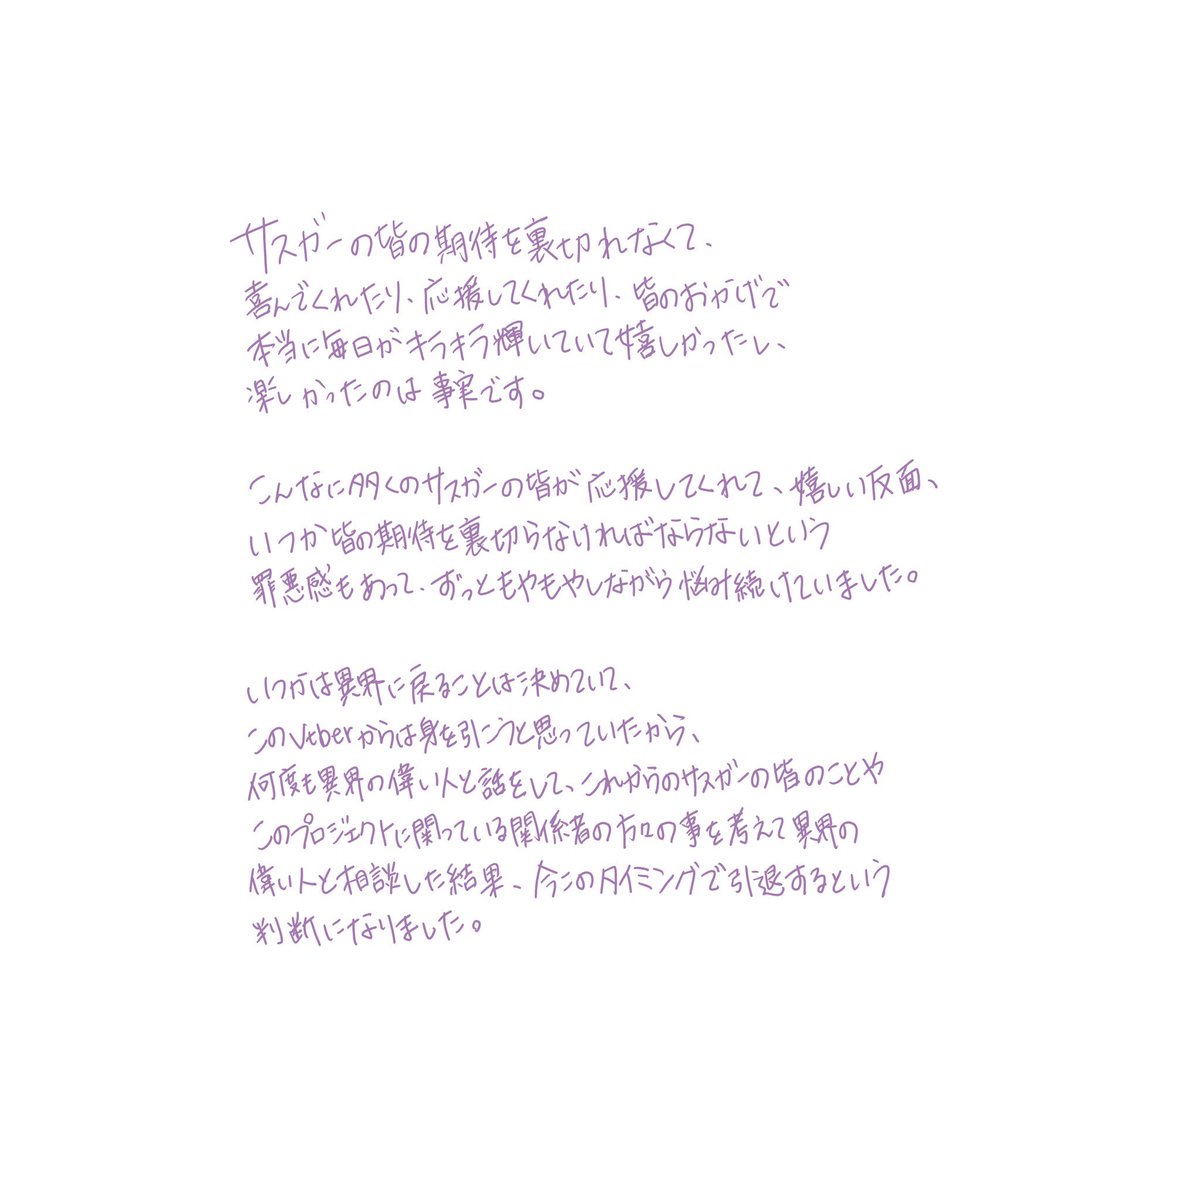 サスガーの皆の期待を裏切れなくて、
喜んでくれたり、応援してくれたり、皆のおかげで
本当に毎日がキラキラ輝いていて嬉しかったし、
楽しかったのは事実です。
こんなに多くのサスガーの皆が応援してくれて、嬉しい反面、
いつか皆の期待を裏切らなければならないという
罪悪感もあって、ずっともやもやしながら悩み続けていました。
いつかは異界に戻ることは決めていて、
このVtberからは身を引こうと思っていたから、
何度も異界の偉い人と話をして、これからのサスガーの皆のことや
このプロジェクトに関っている関係者の方々の事を考えて異界の
偉い人と相談した結果、今このタイミングで引退するという
判断になりました。